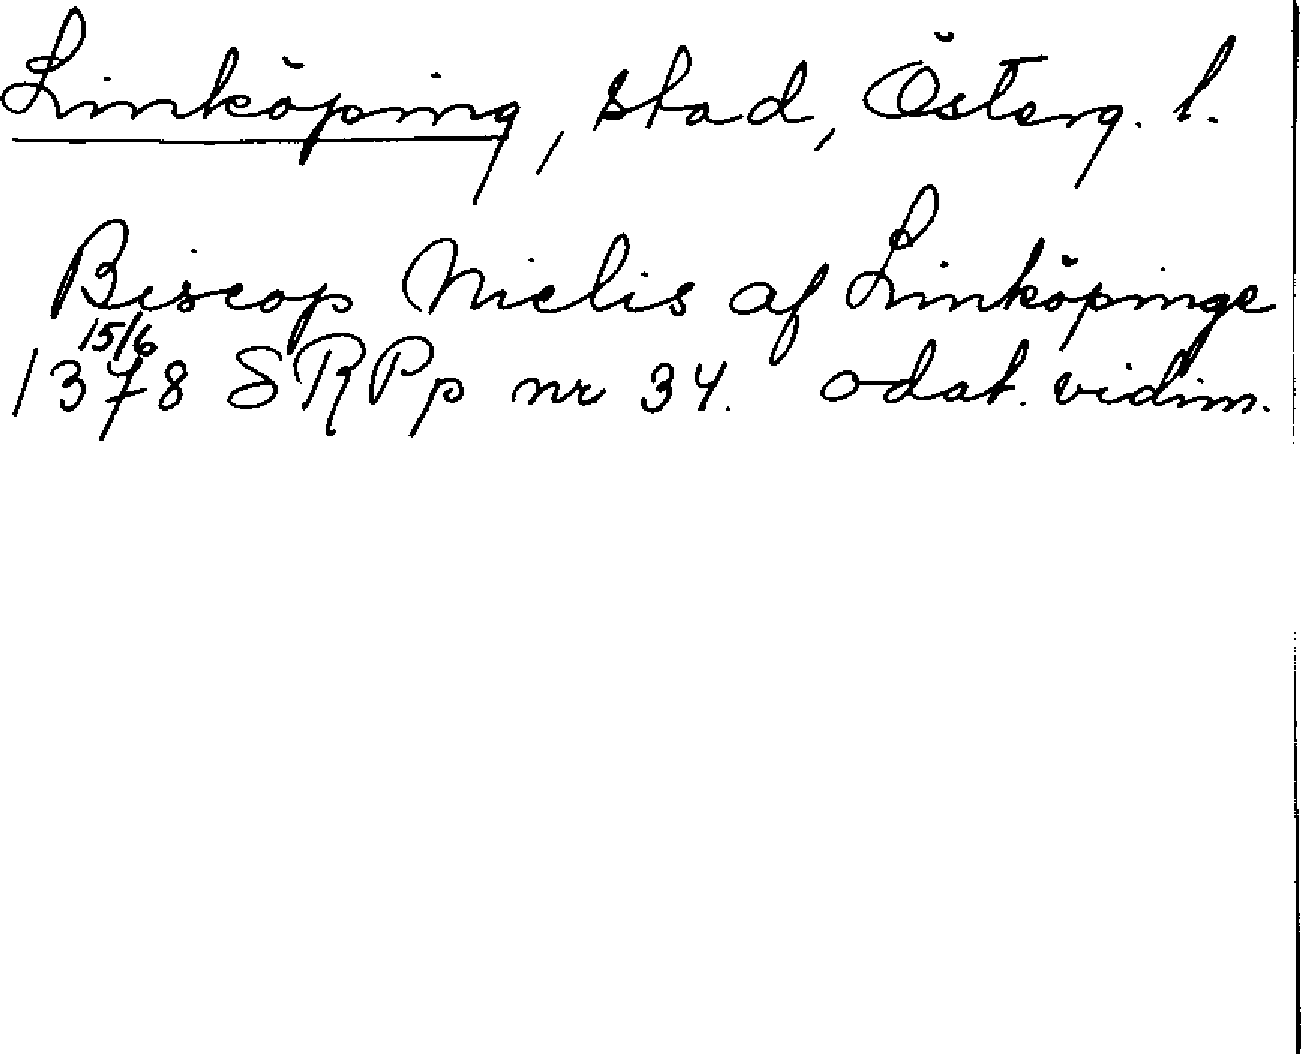 Linköping, stad, Österg. l.
Biscop Nielis af Linköpinge
15/6
1378 SRPp nr 34. odat. vidim.